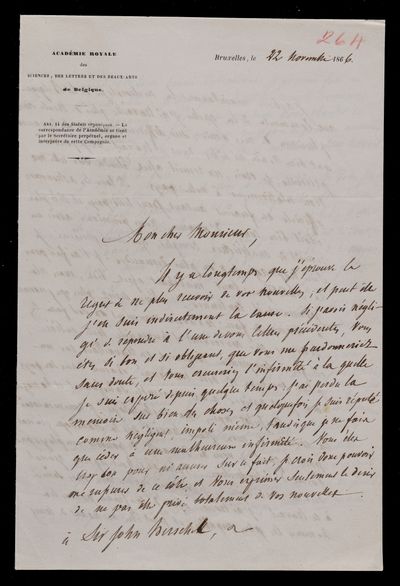 264
ACADÉMIE ROYALE
des
SCIENCES, DES LETTRES ET DES BEAUX-ARTS
de Belgique.
Bruxelles, le 22 Novembre 1866.
ART. 14 des Statuts organiques. — La
correspondance de l'Académie se tient
par le Secrétaire perpétuel, organe et
interprète de cette Compagnie.
Mon cher Monsieur,
Il y a longtemps que j'éprouve le
regret de ne plus recevoir de vos nouvelles, et peut être
j'en suis indirectement la cause. Si j'avais négli-
gé de répondre à l'une de vos lettres précédentes, vous
êtes si bon et si obligeant, que vous me pardonneriez
sans doute, et vous excuseriez l'infirmité à la quelle
je suis exposé depuis quelque temps. j'ai perdu la
mémoire sur bien des choses et quelquefois je suis réputé
comme négligent impoli même, tandis que je ne fais
que céder à une malheureuse infirmité. Vous êtes
trop bon pour sur ce fait, je crois donc pouvoir
de ce côté et vous exprimer seulement le désir
de ne pas être privé totalement de vos nouvelles
à Sir John Herschel,